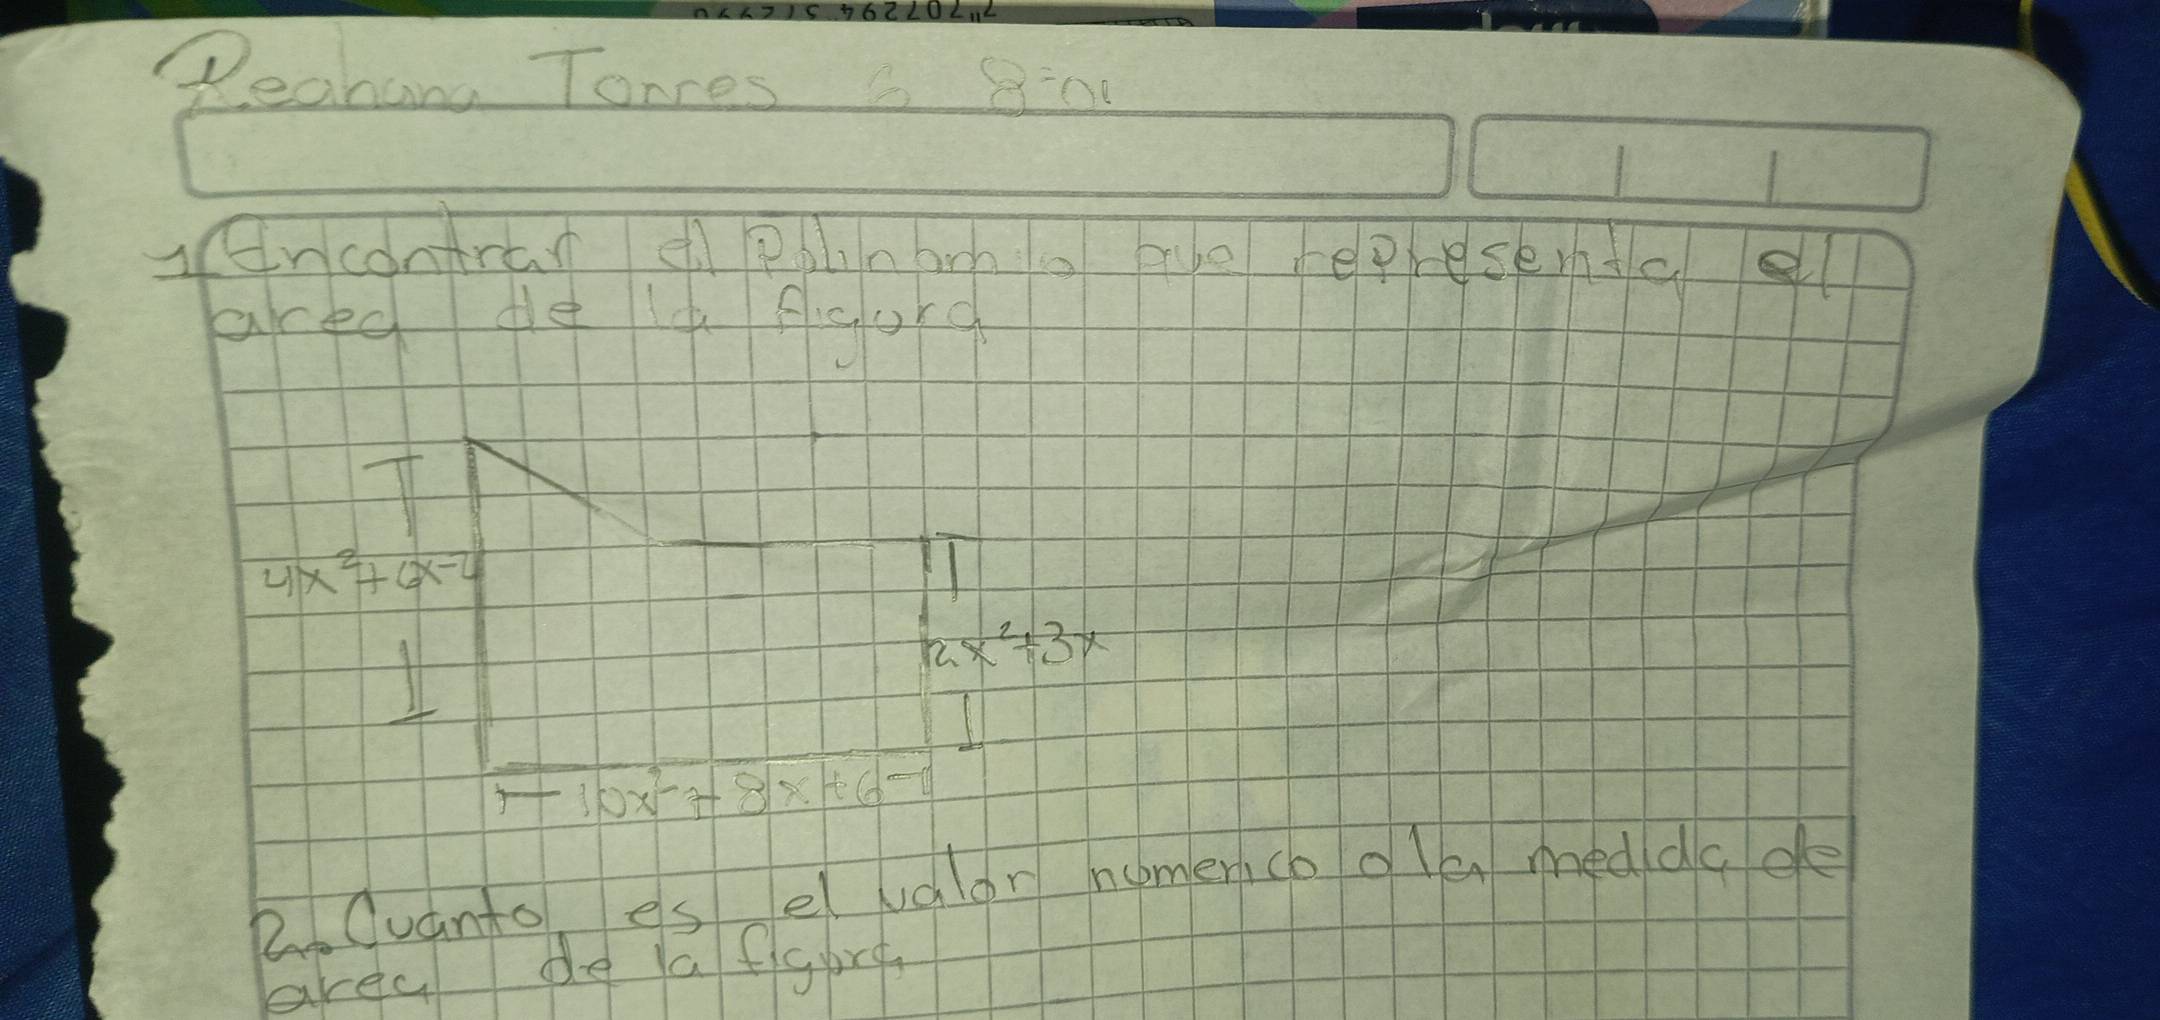 Reahana Torres 8-01
1 Encontrar el Polinomio que representa el
area de la figura
4x²+6x-2
2x²+3x
10x²+8x+6
2. Cuanto es el valor numerico o la medida de
area de la figura